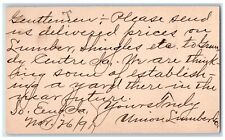 Gentlemen:- Please send
us delivered prices on
Lumber, Shingles etc. to Grun-
dy Centre Ia. We are think-
ing some of establish-
ing a yard there in the
near future.
Yours truly
Union Lumber Co.
Nov. 26/97